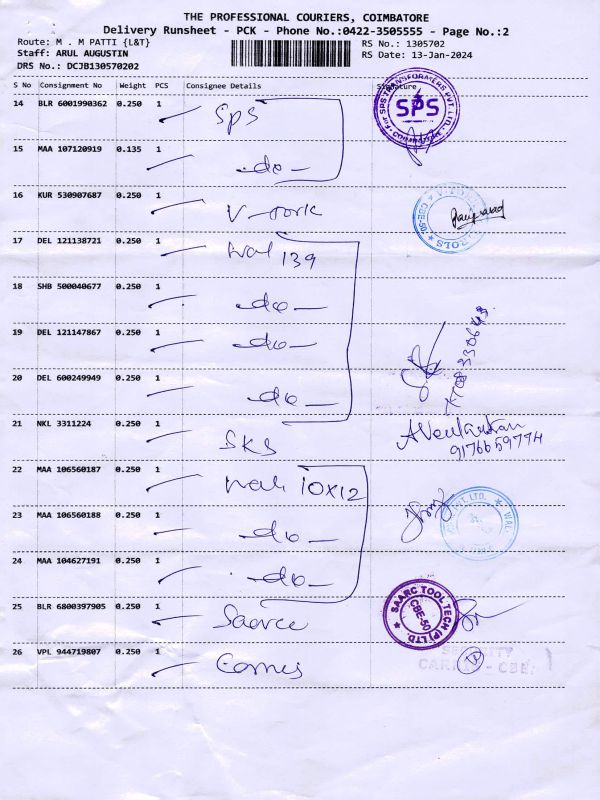 THE PROFESSIONAL COURIERS, COIMBATORE
Delivery Runsheet - PCK - Phone No.:0422-3505555 - Page No.:2
Route: M . M PATTI {L&T} RS No.: 1305702
Staff: ARUL AUGUSTIN RS Date: 13-Jan-2024
DRS No.: DCJB130570202
S No Consignment No Weight PCS Consignee Details Signature
14 BLR 6001990362 0.250 1 SPS
For SPS TRANSFORMERS PVT. LTD. COIMBATORE
SPS
15 MAA 107120919 0.135 1 -do-
16 KUR 530907687 0.250 1 V-
17 DEL 121138721 0.250 1 139
18 SHB 500040677 0.250 1 -do-
19 DEL 121147867 0.250 1 -do-
20 DEL 600249949 0.250 1 -do-
21 NKL 3311224 0.250 1 SKS
9176659774
22 MAA 106560187 0.250 1 10x12
PVT. LTD. WAL
23 MAA 106560188 0.250 1 -do-
24 MAA 104627191 0.250 1 -do-
25 BLR 6800397905 0.250 1
SAARC TOOL TECH (P) LTD.
CBE-50
26 VPL 944719807 0.250 1
SECURITY